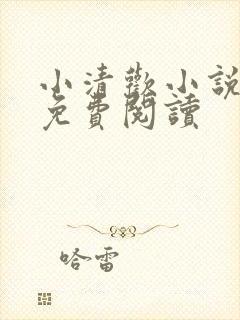 小清歡小說
免費閱讀
哈雷